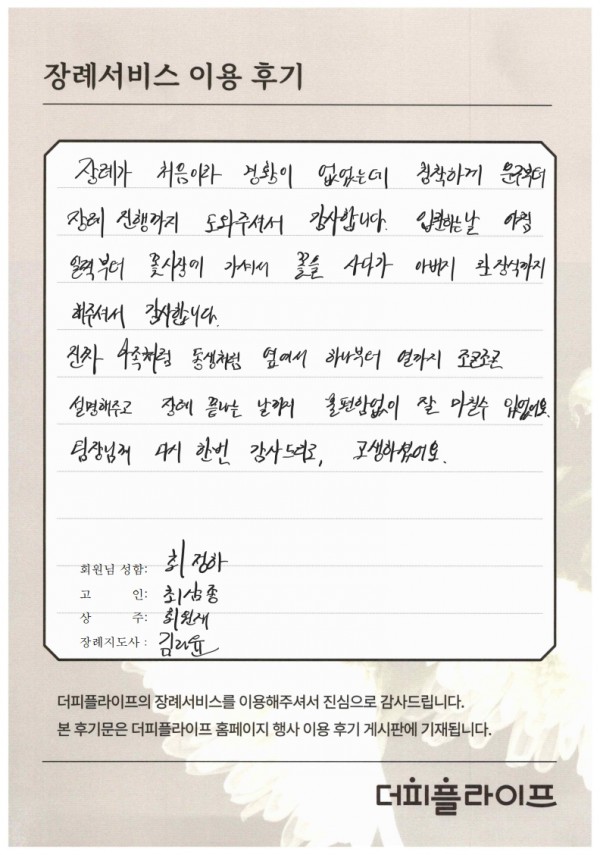 장례서비스 이용 후기
장례가 처음이라 경황이 없었는데 침착하게 운구부터
장례 진행까지 도와주셔서 감사합니다. 입관하는날 아침
일찍부터 꽃시장에 가셔서 꽃을 사다가 아버지 관장식까지
해주셔서 감사합니다.
진짜 가족처럼 동생처럼 옆에서 하나부터 열까지 조근조근
설명해주고 장례 끝나는 날까지 불편함없이 잘 마칠수 있었어요.
팀장님께 다시 한번 감사드리고, 고생하셨어요.
회원님 성함: 최정하
고 인: 최삼종
상 주: 최원재
장례지도사 : 김라윤
더피플라이프의 장례서비스를 이용해주셔서 진심으로 감사드립니다.
본 후기문은 더피플라이프 홈페이지 행사 이용 후기 게시판에 기재됩니다.
더피플라이프